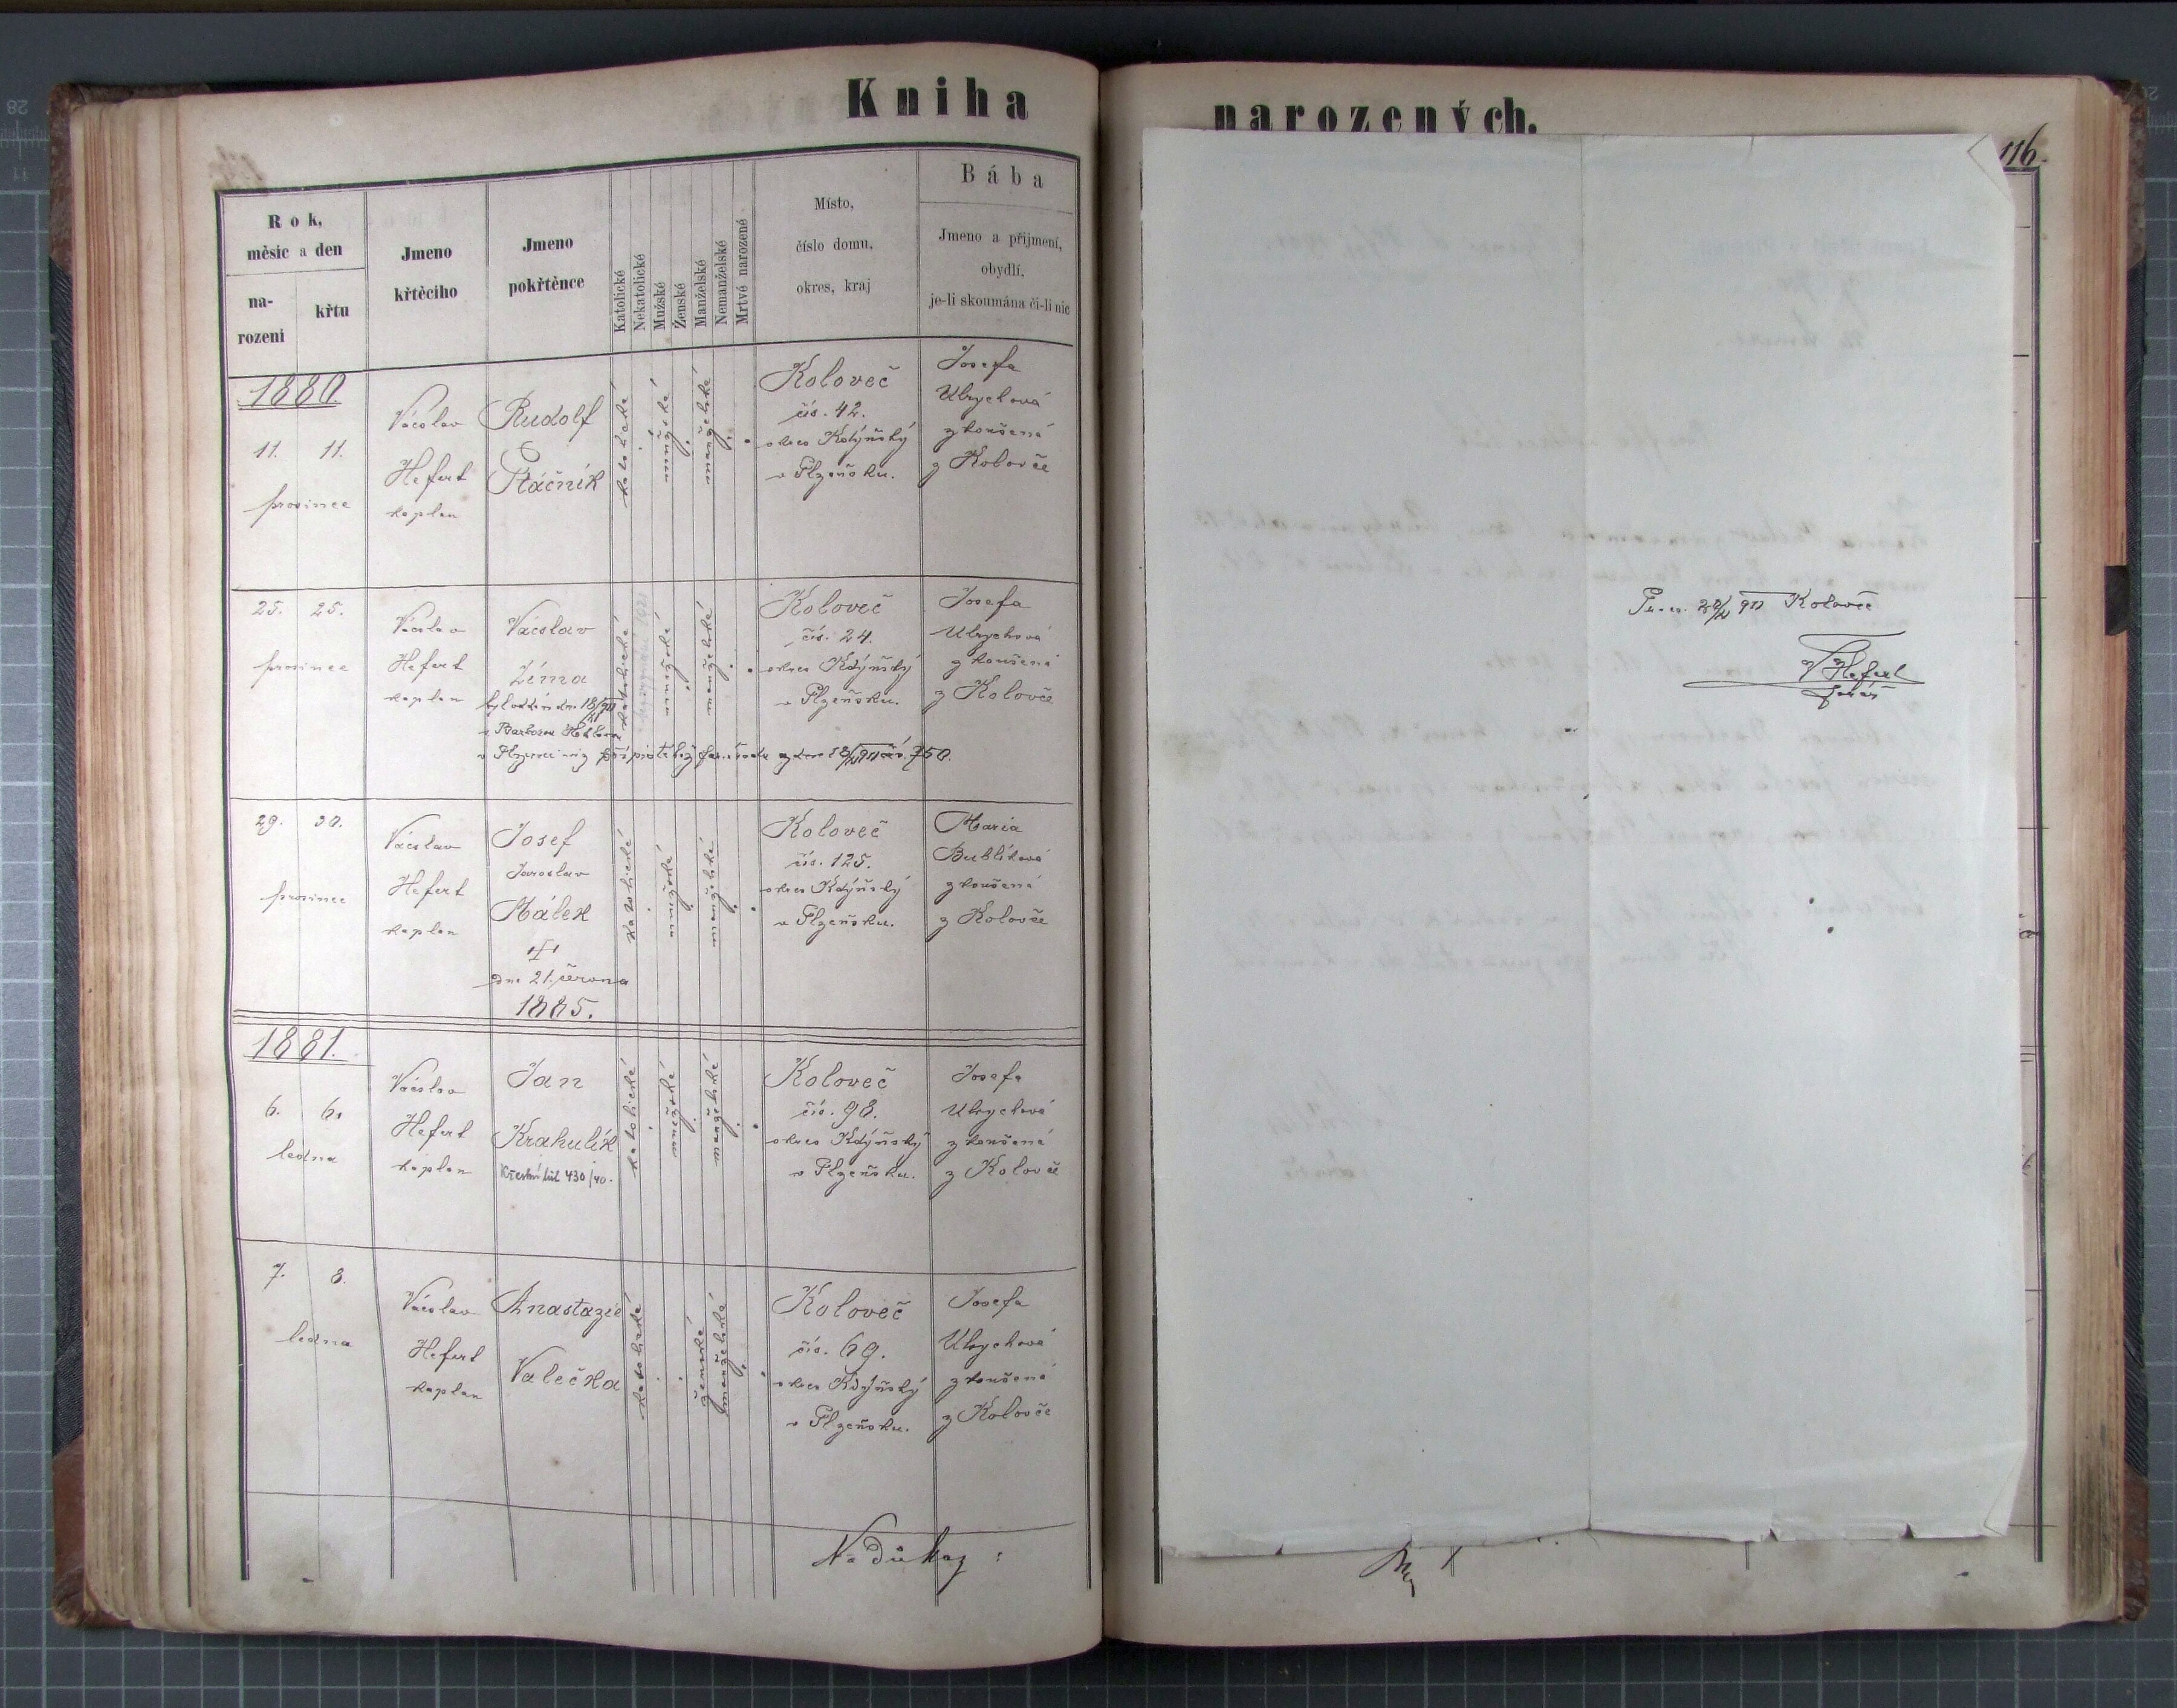 Kniha
narozených.
116.
Rok,
měsíc a den
na-
rozeni
křtu
Jmeno
křtěcího
Jmeno
pokřtěnce
Katolické
Nekatolické
Mužské
Ženské
Manželské
Nemanželské
Mrtvě narozené
Místo,
číslo domu,
okres, kraj
Bába
Jmeno a přijmení,
obydlí,
je-li skoumána či-li nic
1880.
11. 11.
prosince
Václav
Hefert
kaplan
Rudolf
Ptáčník
katolické
mužské
manželské
Koloveč
čís. 42.
okres Kdýňský
v Plzeňsku.
Josefa
Ulrychová
zkoušená
z Kolovče
25. 25.
prosince
Václav
Hefert
kaplan
Václav
Zíma
byl oddán dne 18/XI 911
s Barborou
v Plzni
katolické
mužské
manželské
Koloveč
čís. 24.
okres Kdýňský
v Plzeňsku.
Josefa
Ulrychová
zkoušená
z Kolovče
29. 30.
prosince
Václav
Hefert
kaplan
Josef
Jaroslav
Málek
dne 21. června
1885.
katolické
mužské
manželské
Koloveč
čís. 125.
okres Kdýňský
v Plzeňsku.
Maria
Bublíková
zkoušená
z Kolovče
1881.
6. 6.
ledna
Václav
Hefert
kaplan
Jan
Krahulík
Křestní list 430/40.
katolické
mužské
manželské
Koloveč
čís. 98.
okres Kdýňský
v Plzeňsku.
Josefa
Ulrychová
zkoušená
z Kolovče
7. 8.
ledna
Václav
Hefert
kaplan
Anastazie
Valečka
katolické
ženské
manželské
Koloveč
čís. 69.
okres Kdýňský
v Plzeňsku.
Josefa
Ulrychová
zkoušená
z Kolovče
Na důkaz :
Koloveč
V Hefert
farář